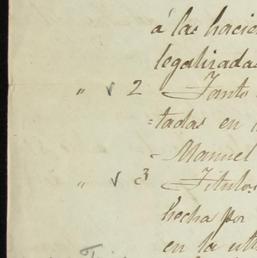 á las hacien
legalizadas
" √ 2 Tanto
=tadas en
- Manuel
" √ 3 Titulos
hecha por
en la ulti